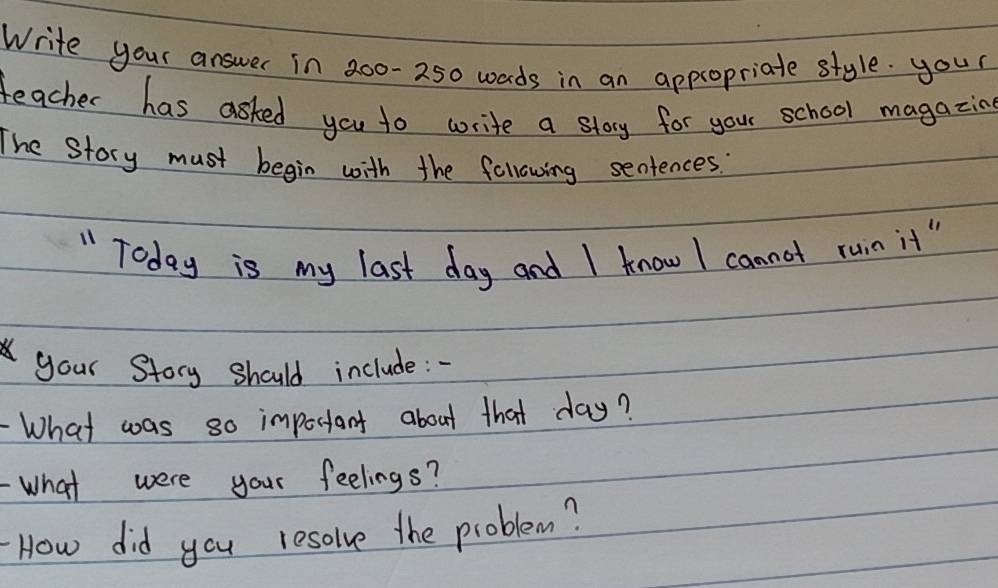 Write your answer in 200-250 words in an appropriate style. your
teacher has asked you to write a story for your school magazine
The Story must begin with the following sentences:
"Today is my last day and I know I cannot ruin it"
* your Story should include:-
- What was so important about that day?
- What were your feelings?
- How did you resolve the problem?